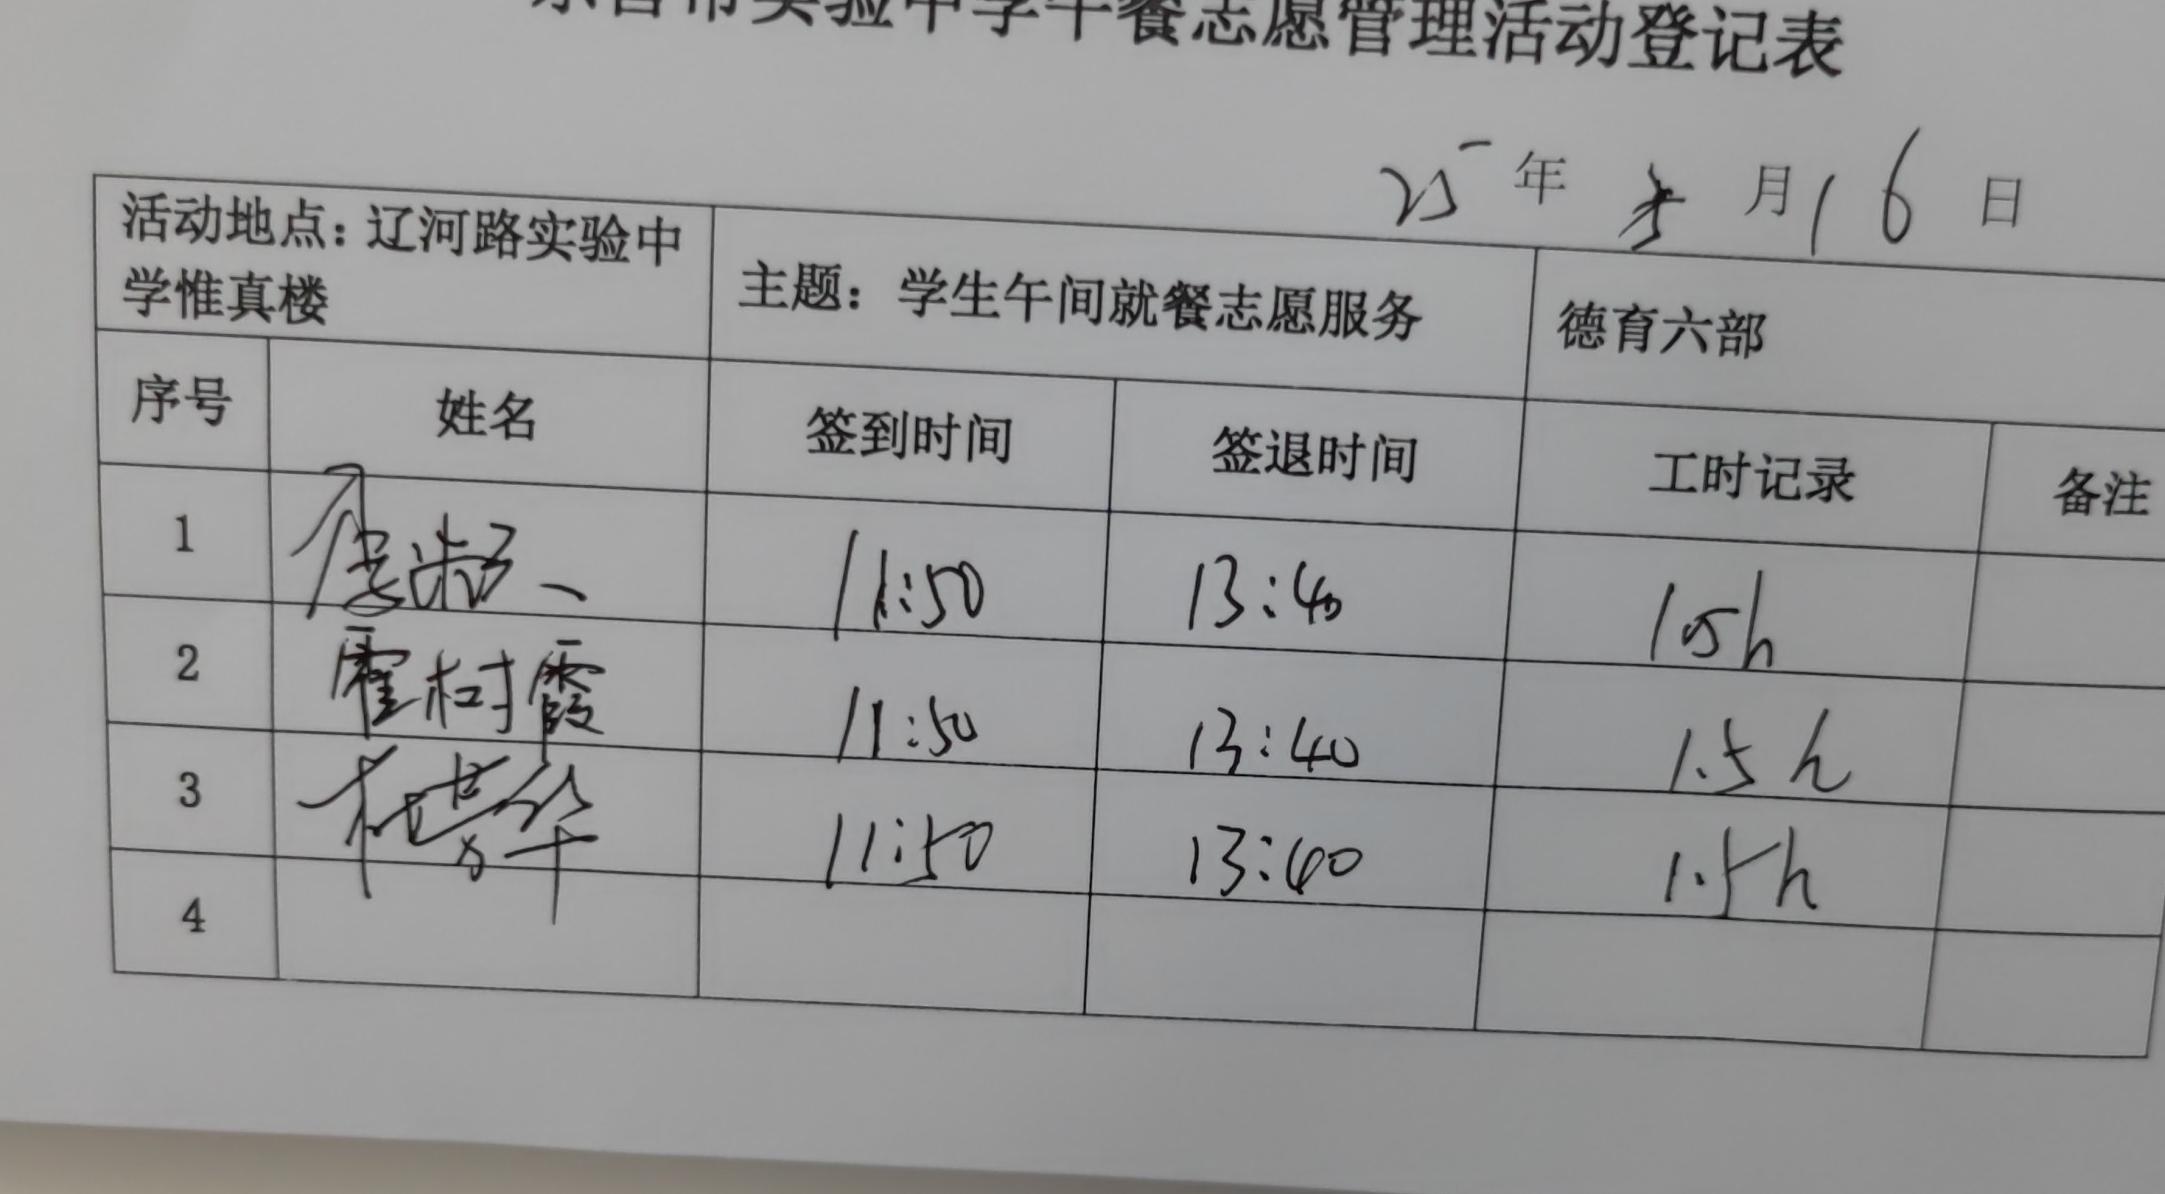 东台市实验中学午餐志愿管理活动登记表
25年 月16日
活动地点：辽河路实验中
学惟真楼
主题：学生午间就餐志愿服务
德育六部
序号 姓名 签到时间 签退时间 工时记录 备注
1 11:50 13:40 1.5h
2 霍树霞 11:50 13:40 1.5h
3 11:50 13:40 1.5h
4